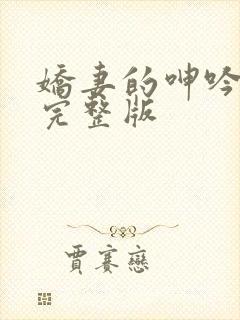 嬌妻的呻吟
完整版
賈賽戀